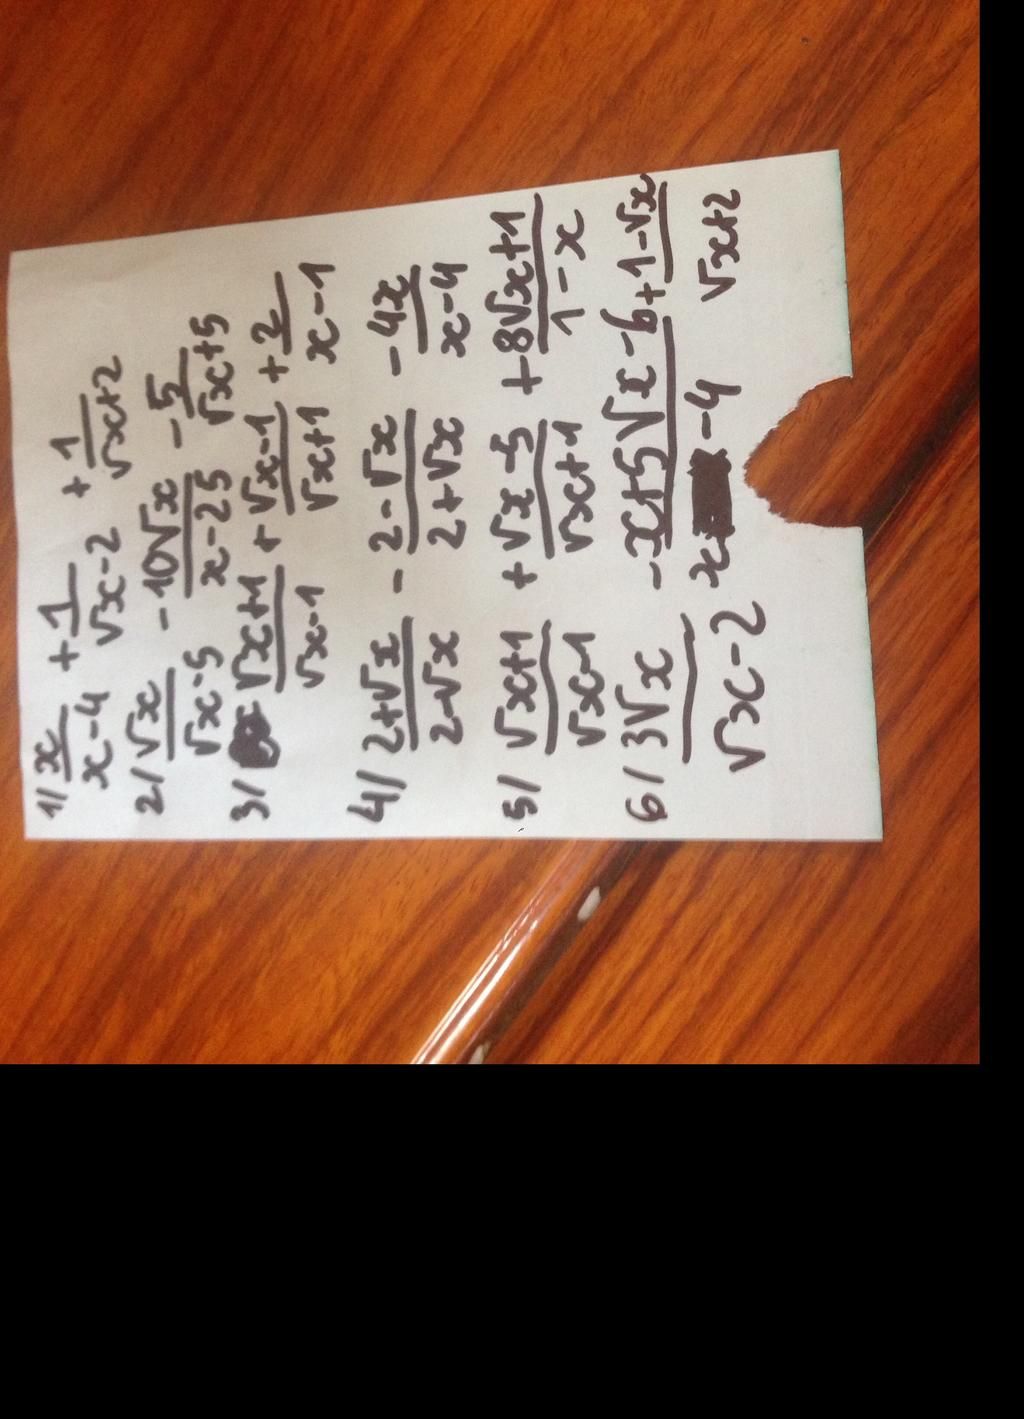 1/ x/(x-4) + 1/(√x-2) + 1/(√x+2)
2/ √x/(√x-5) - 10√x/(x-25) - 5/(√x+5)
3/ (√x+1)/(√x-1) + (√x-1)/(√x+1) + 2/(x-1)
4/ (2+√x)/(2-√x) - (2-√x)/(2+√x) - 4x/(x-4)
5/ (√x+1)/(√x-1) + (√x-5)/(√x+1) + (8√x+1)/(1-x)
6/ 3√x/(√x-2) - (x+5√x-6)/(x-4) + (1-√x)/(√x+2)